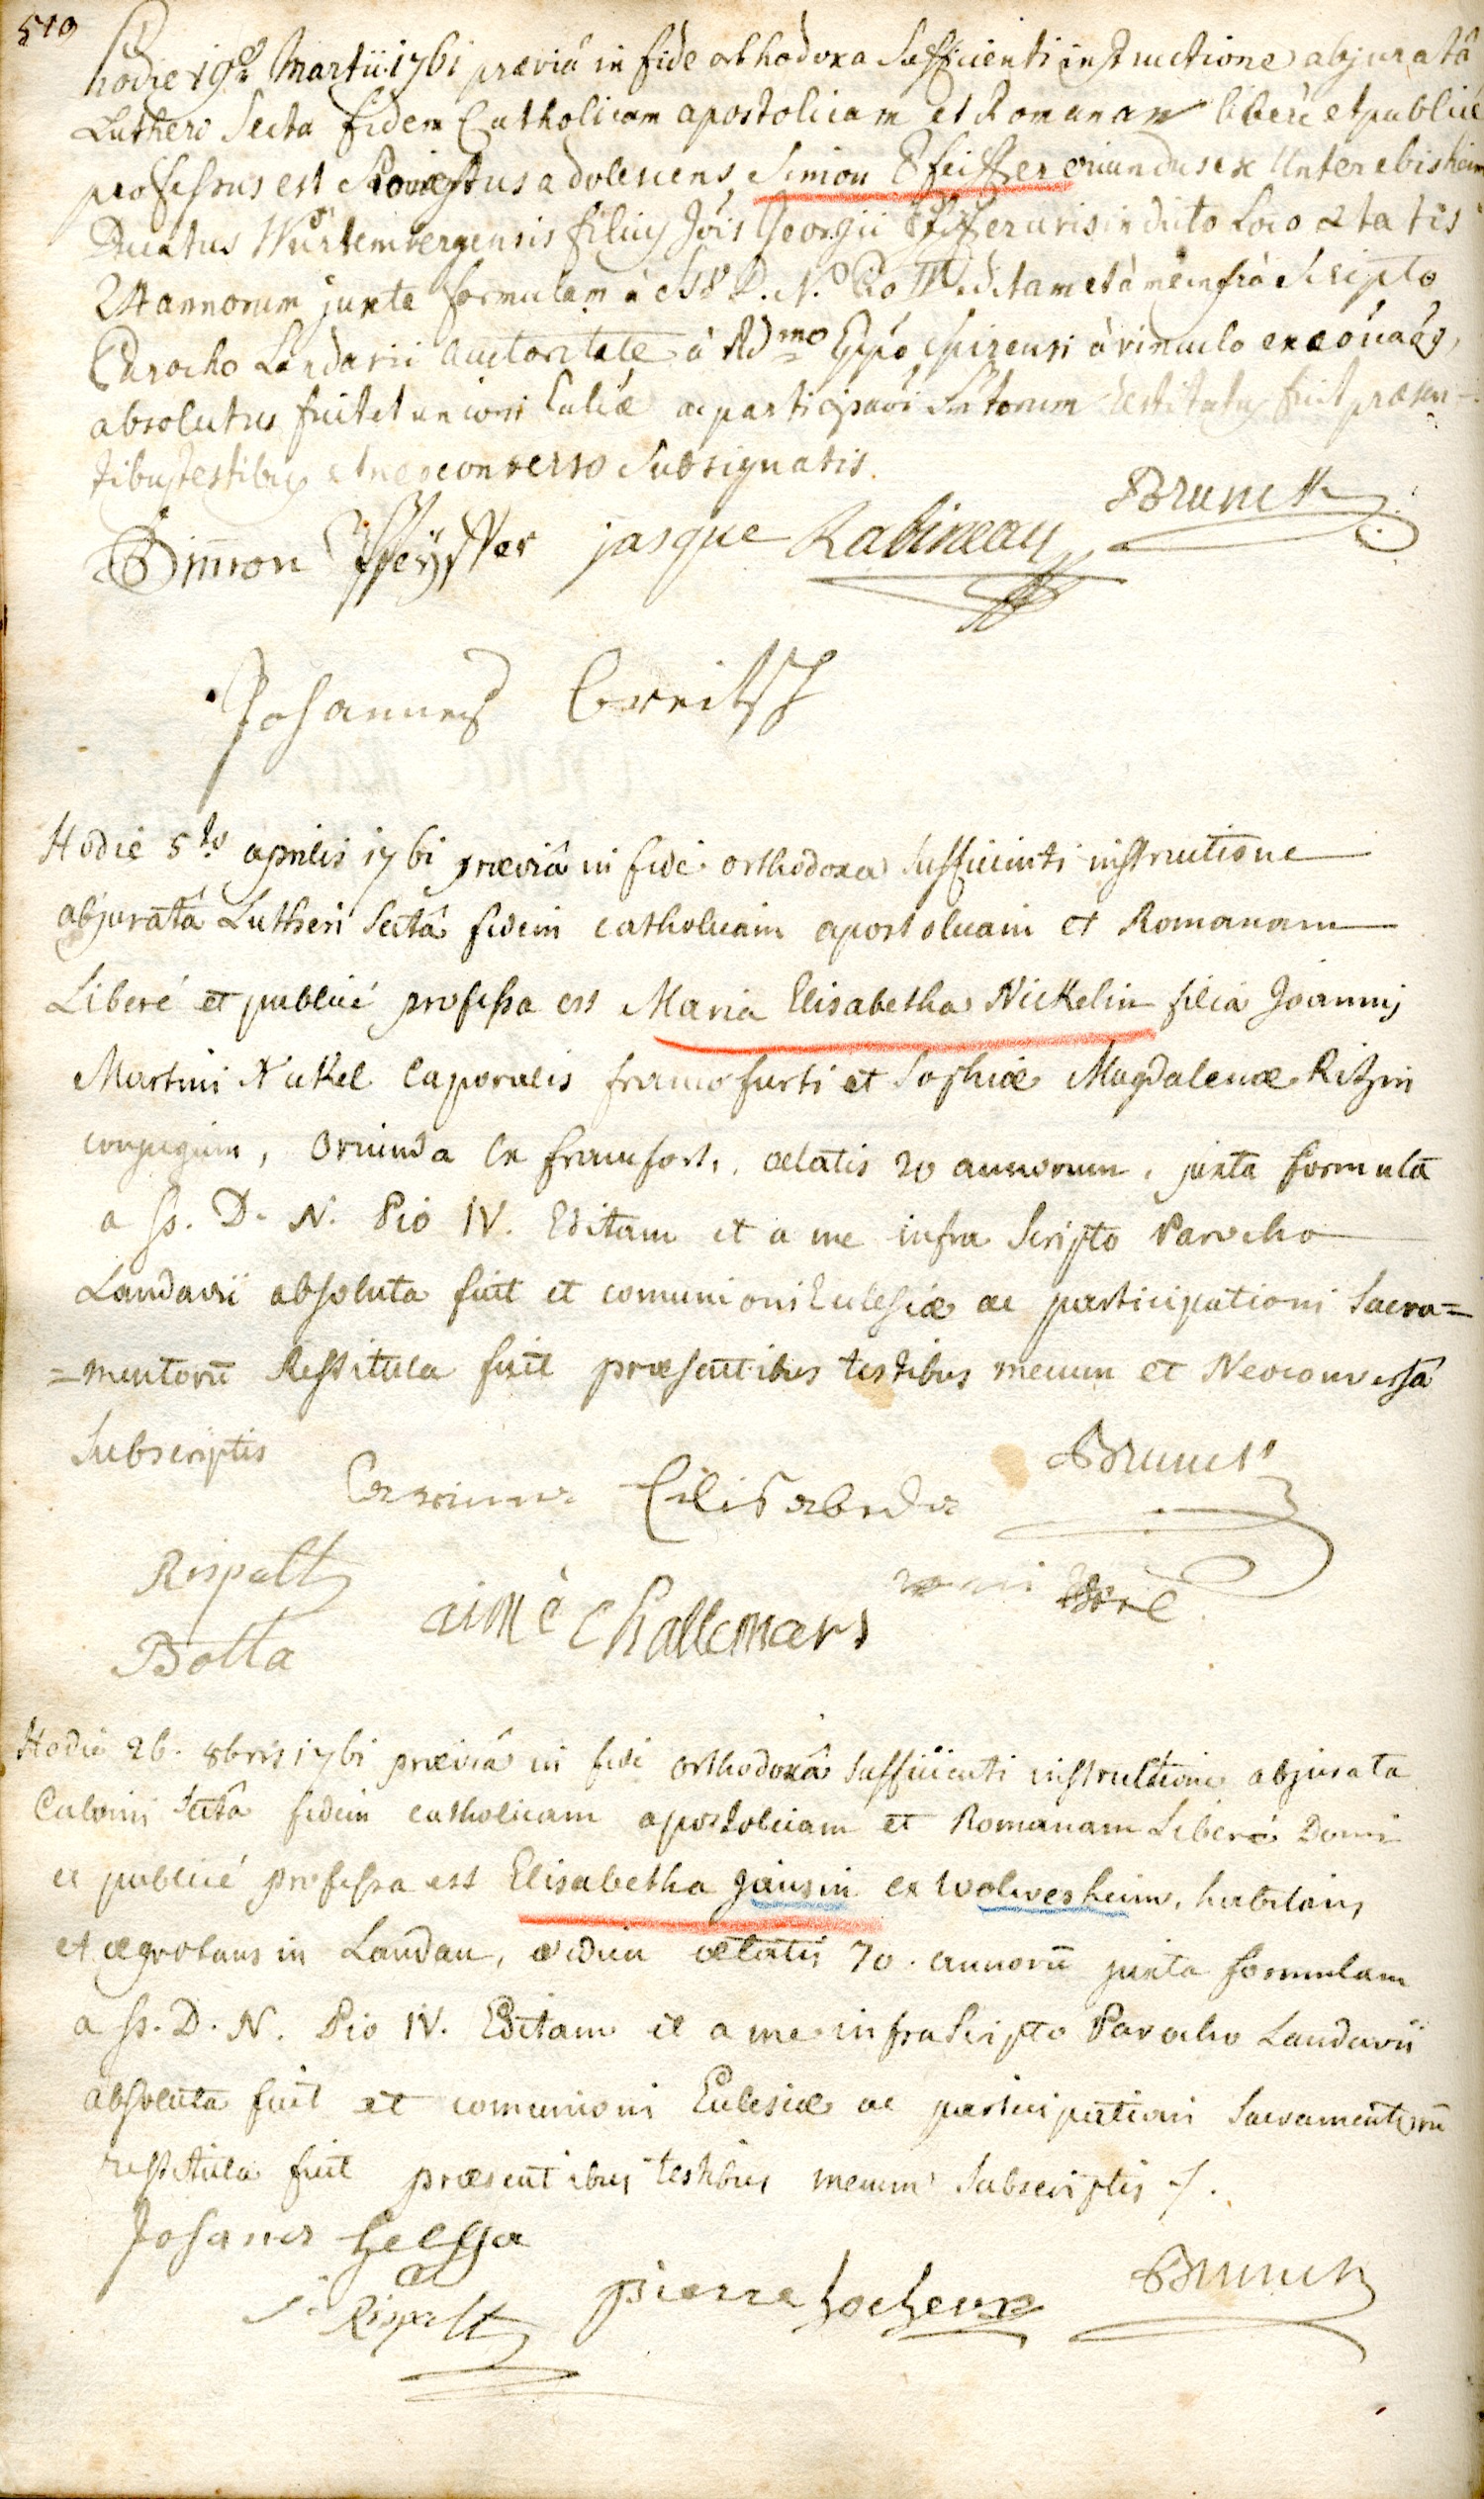 519
hodie 19a Martii 1761 praeviâ in fide orthodoxa Sufficienti instructione abjuratâ
Lutheri Secta fidem Catholicam apostolicam et Romanam liberè et publicè
professus est adolescens Simon Pfeiffer oriundus ex Unterebisheim
Ducatus Würtembergensis filius Jois Georgii Pfeiffer civis in dicto Loco ætatis
24 annorum juxta formulam à SS. D. N.o Pio IV editam et à me infrà Scripto
Parocho Landavii auctoritate à Rdmo Eppo Spirensi à vinculo
absolutus fuit et unioni Ecliæ ac participaōi Sctorum restitutus fuit præsen-
tibus testibus et neoconverso Subsignatis.
Simon Pfeyffer jasque Rabineau Brunck
Johannes
Hodie 5to aprilis 1761 præviâ in fide orthodoxa Sufficienti instructione
abjuratâ Lutheri Sectâ fidem catholicam apostolicam et Romanam
Liberé et publicé professa est Maria Elisabetha Nickelin filia Joannis
Martini Nickel Caporalis francofurti et Sophiæ Magdalenæ Ritzin
conjugum, oriunda ex francfort, ætatis 20 annorum, juxta formulā
a ss. D. N. Pio IV. Editam et a me infra Scripto Parocho
Landavii absoluta fuit et comunioni Eclesiæ ac participationi Sacra=
=mentorū Restituta fuit præsentibus testibus mecum et Neoconversâ
Subscriptis Brunck
Rispalt
aimé challemars
Botta
Hodie 26. 8bris 1761 præviâ in fide orthodoxâ Sufficienti instructione abjurata
Calvini Sectâ fidem catholicam apostolicam et Romanam Liberé Domi
et publicé professa est Elisabetha Jausin ex Wolwesheim, habitans
et ægrotans in Landau, ætatis 70. annorū juxta formulam
a ss. D. N. Pio IV. Editam et a me infra Scripto Parocho Landavii
absoluta fuit et comunioni Eclesiæ ac participationi Sacramentorū
restituta fuit præsentibus testibus mecum Subscriptis
Johanes
Rispalt pierre Brunck